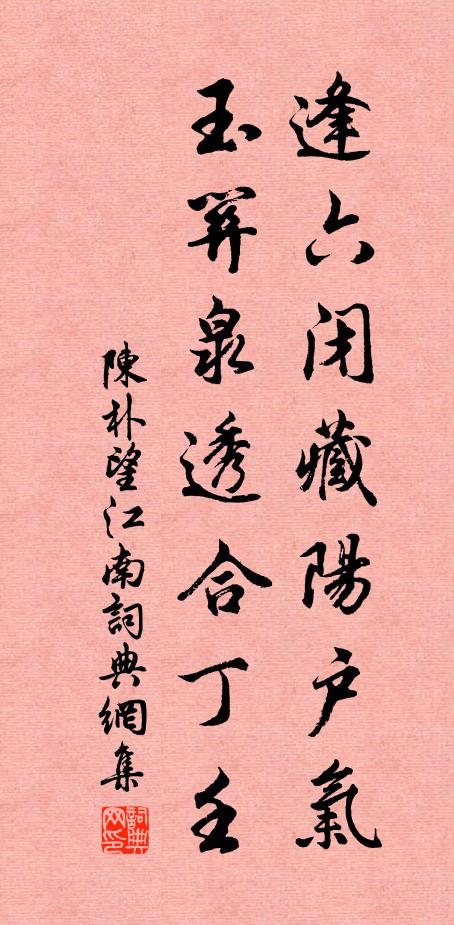 逢六閉藏陽户氣
玉笄泉透合丁壬
陳朴望江南詞典網集
詞典网印